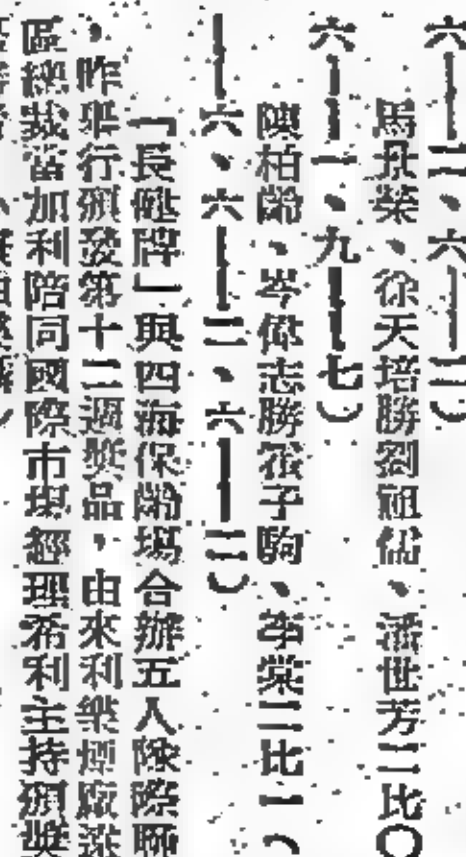 六——二、六——二）
馬烈榮、徐天培勝劉祖儒、潘世芳二比〇
六——一、九——七）
陳柏齡、岑偉志勝翁子駒、李棠二比一（
——六、六——二、六——二）
「長健牌」與四海保齡塲合辦五人隊際聯
，昨舉行頒發第十二週獎品，由來利樂煙廠遠
區總裁當加利陪同國際市塲經理希利主持頒獎